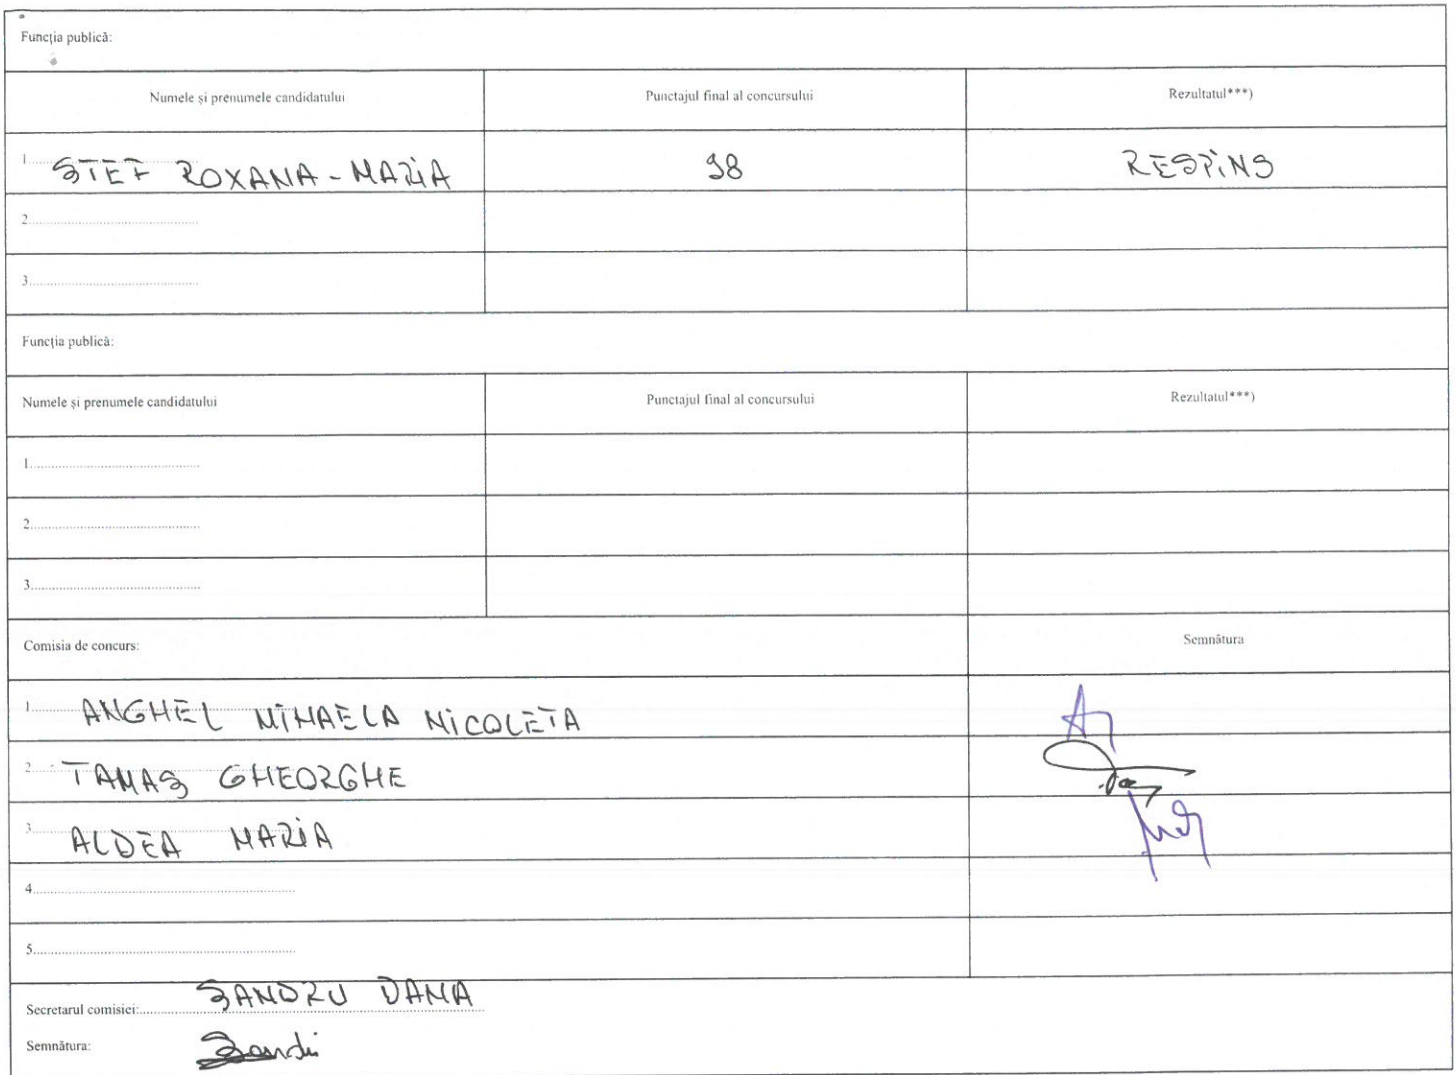 Funcția publică:
Numele și prenumele candidatului Punctajul final al concursului Rezultatul***)
1. STEF ROXANA-MARIA 98 RESPINS
2.
3.
Funcția publică:
Numele și prenumele candidatului Punctajul final al concursului Rezultatul***)
1.
2.
3.
Comisia de concurs: Semnătura
1. ANGHEL MIHAELA NICOLETA
2. TAMAȘ GHEORGHE
3. ALDEA MARIA
4.
5.
Secretarul comisiei: ȘANDRU DANA
Semnătura: